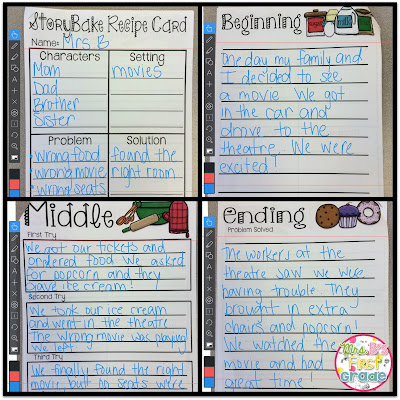 StoryBake Recipe Card
Name: Mrs B
Characters
Setting
Mom
movies
Dad
Brother
Sister
Problem
Solution
wrong food
found the
wrong movie
right room
wrong seats
Beginning
One day my family and
I decided to see
a movie. We got
in the car and
drove to the
theatre. We were
excited!
Middle
First Try
We got our tickets and
ordered food. We asked
for popcorn and they
gave ice cream!
Second Try
We took our ice cream
and went in the theatre
The wrong movie was playing
We left.
Third Try
We finally found the right
movie, but no seats were
Ending
Problem Solved
The workers at the
theatre saw we were
having trouble. They
brought in extra
chairs and popcorn!
We watched the
movie and had
great time!
Mrs. B's
First
Grade